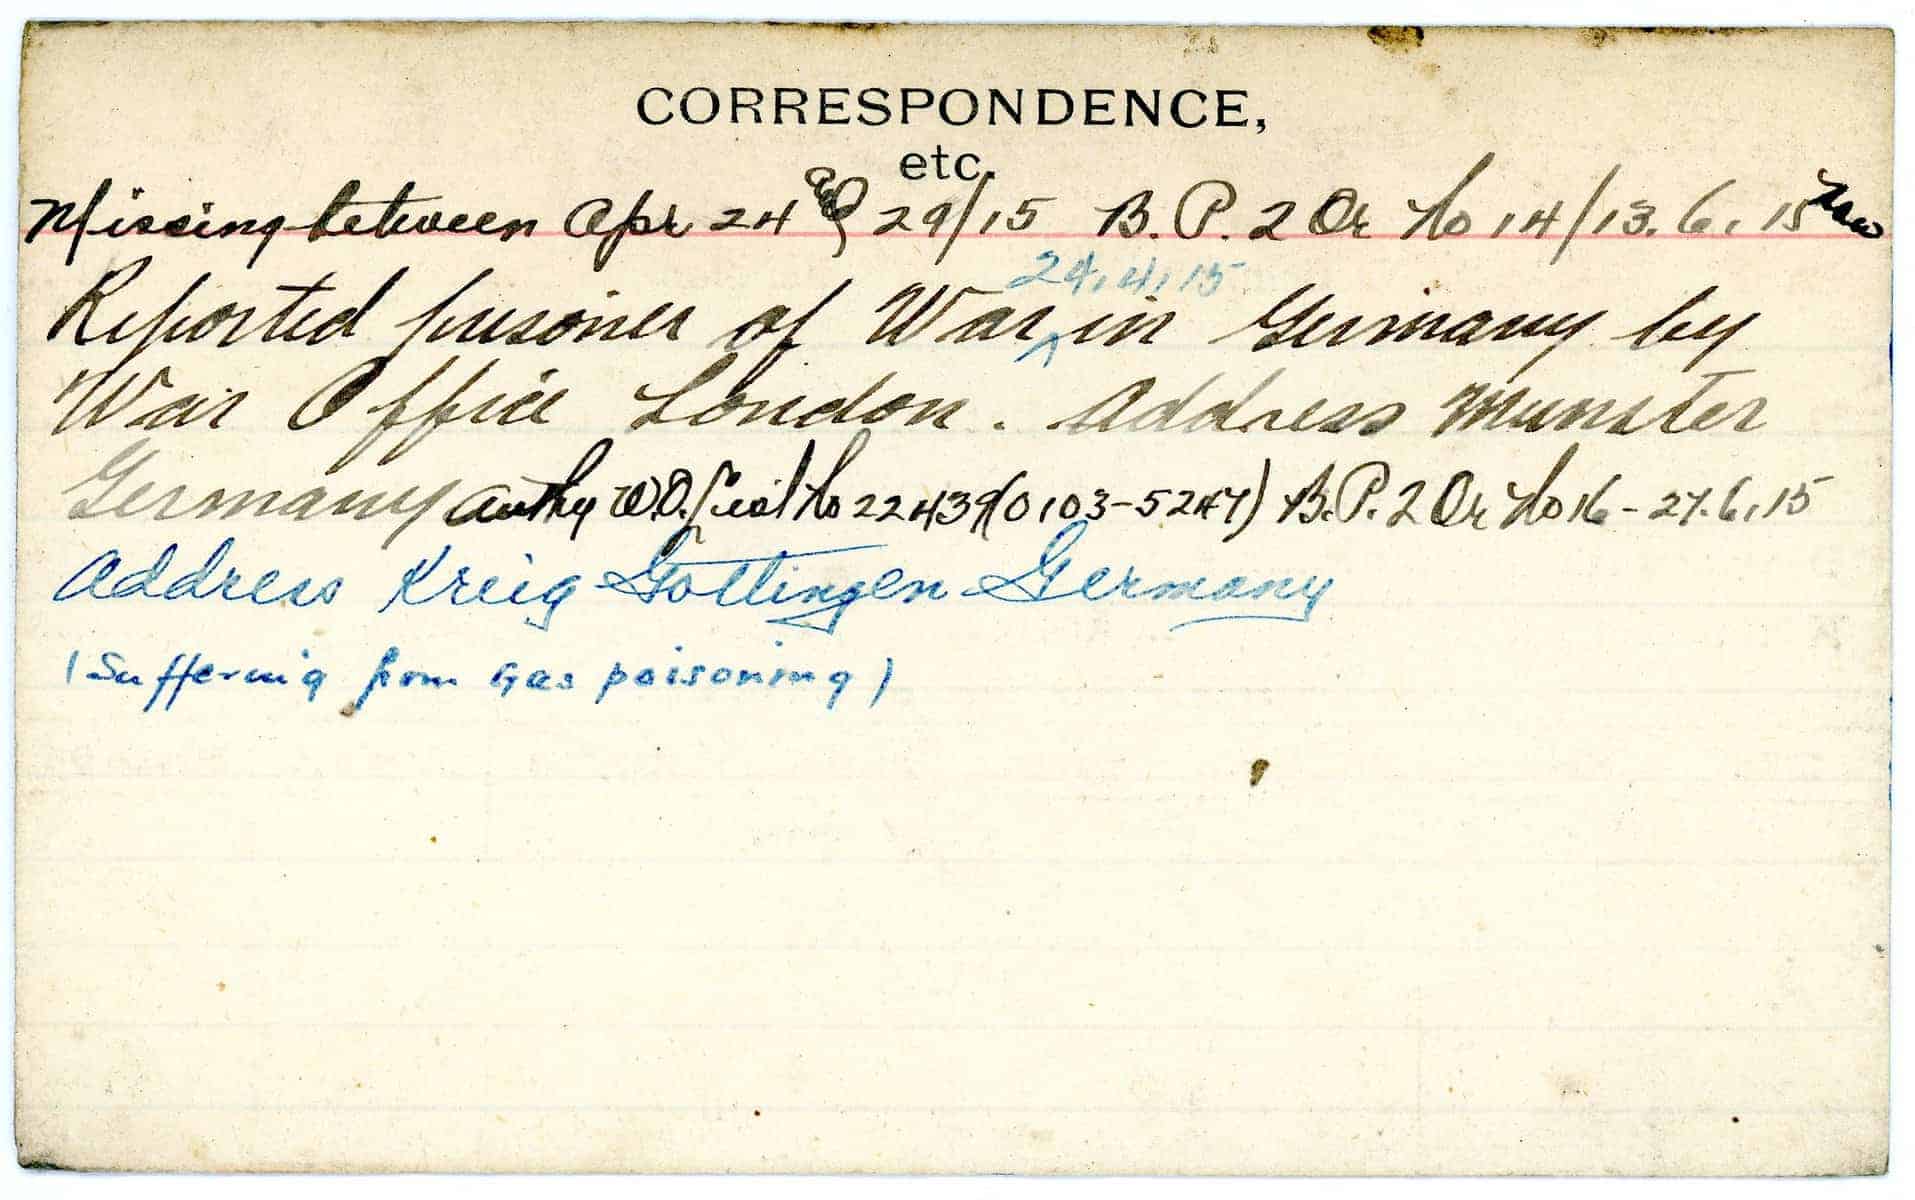 CORRESPONDENCE,
etc.
Missing between Apr 24 & 29/15 B. P. 2 Or No 14/13.6.15 Now
24.4.15
Reported prisoner of War in Germany by
War Office London. Address Munster
Germany Authy W.O. List No 22439(0103-5247) B.P. 2 Or No 16-27.6.15
Address Kreig Gottingen Germany
(Suffering from Gas poisoning)